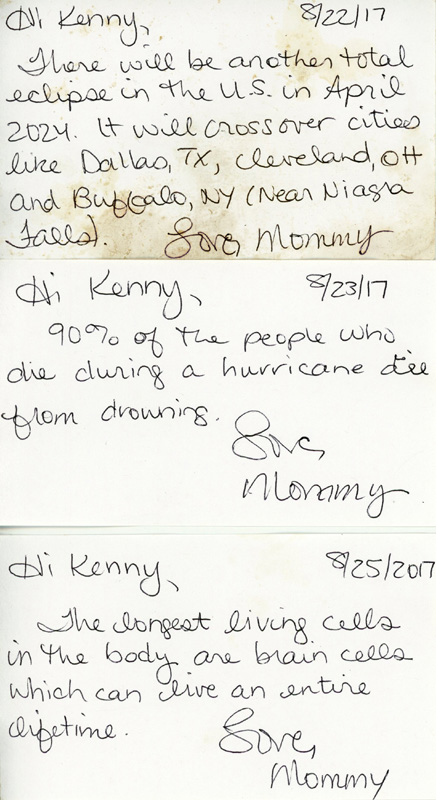 Hi Kenny, 8/22/17
There will be another total
eclipse in the U.S. in April
2024. It will cross over cities
like Dallas, TX, Cleveland, OH
and Buffalo, NY (Near Niagra
Falls). Love, Mommy
Hi Kenny, 8/23/17
90% of the people who
die during a hurricane die
from drowning.
Love,
Mommy
Hi Kenny, 8/25/2017
The longest living cells
in the body are brain cells
which can live an entire
lifetime.
Love,
Mommy